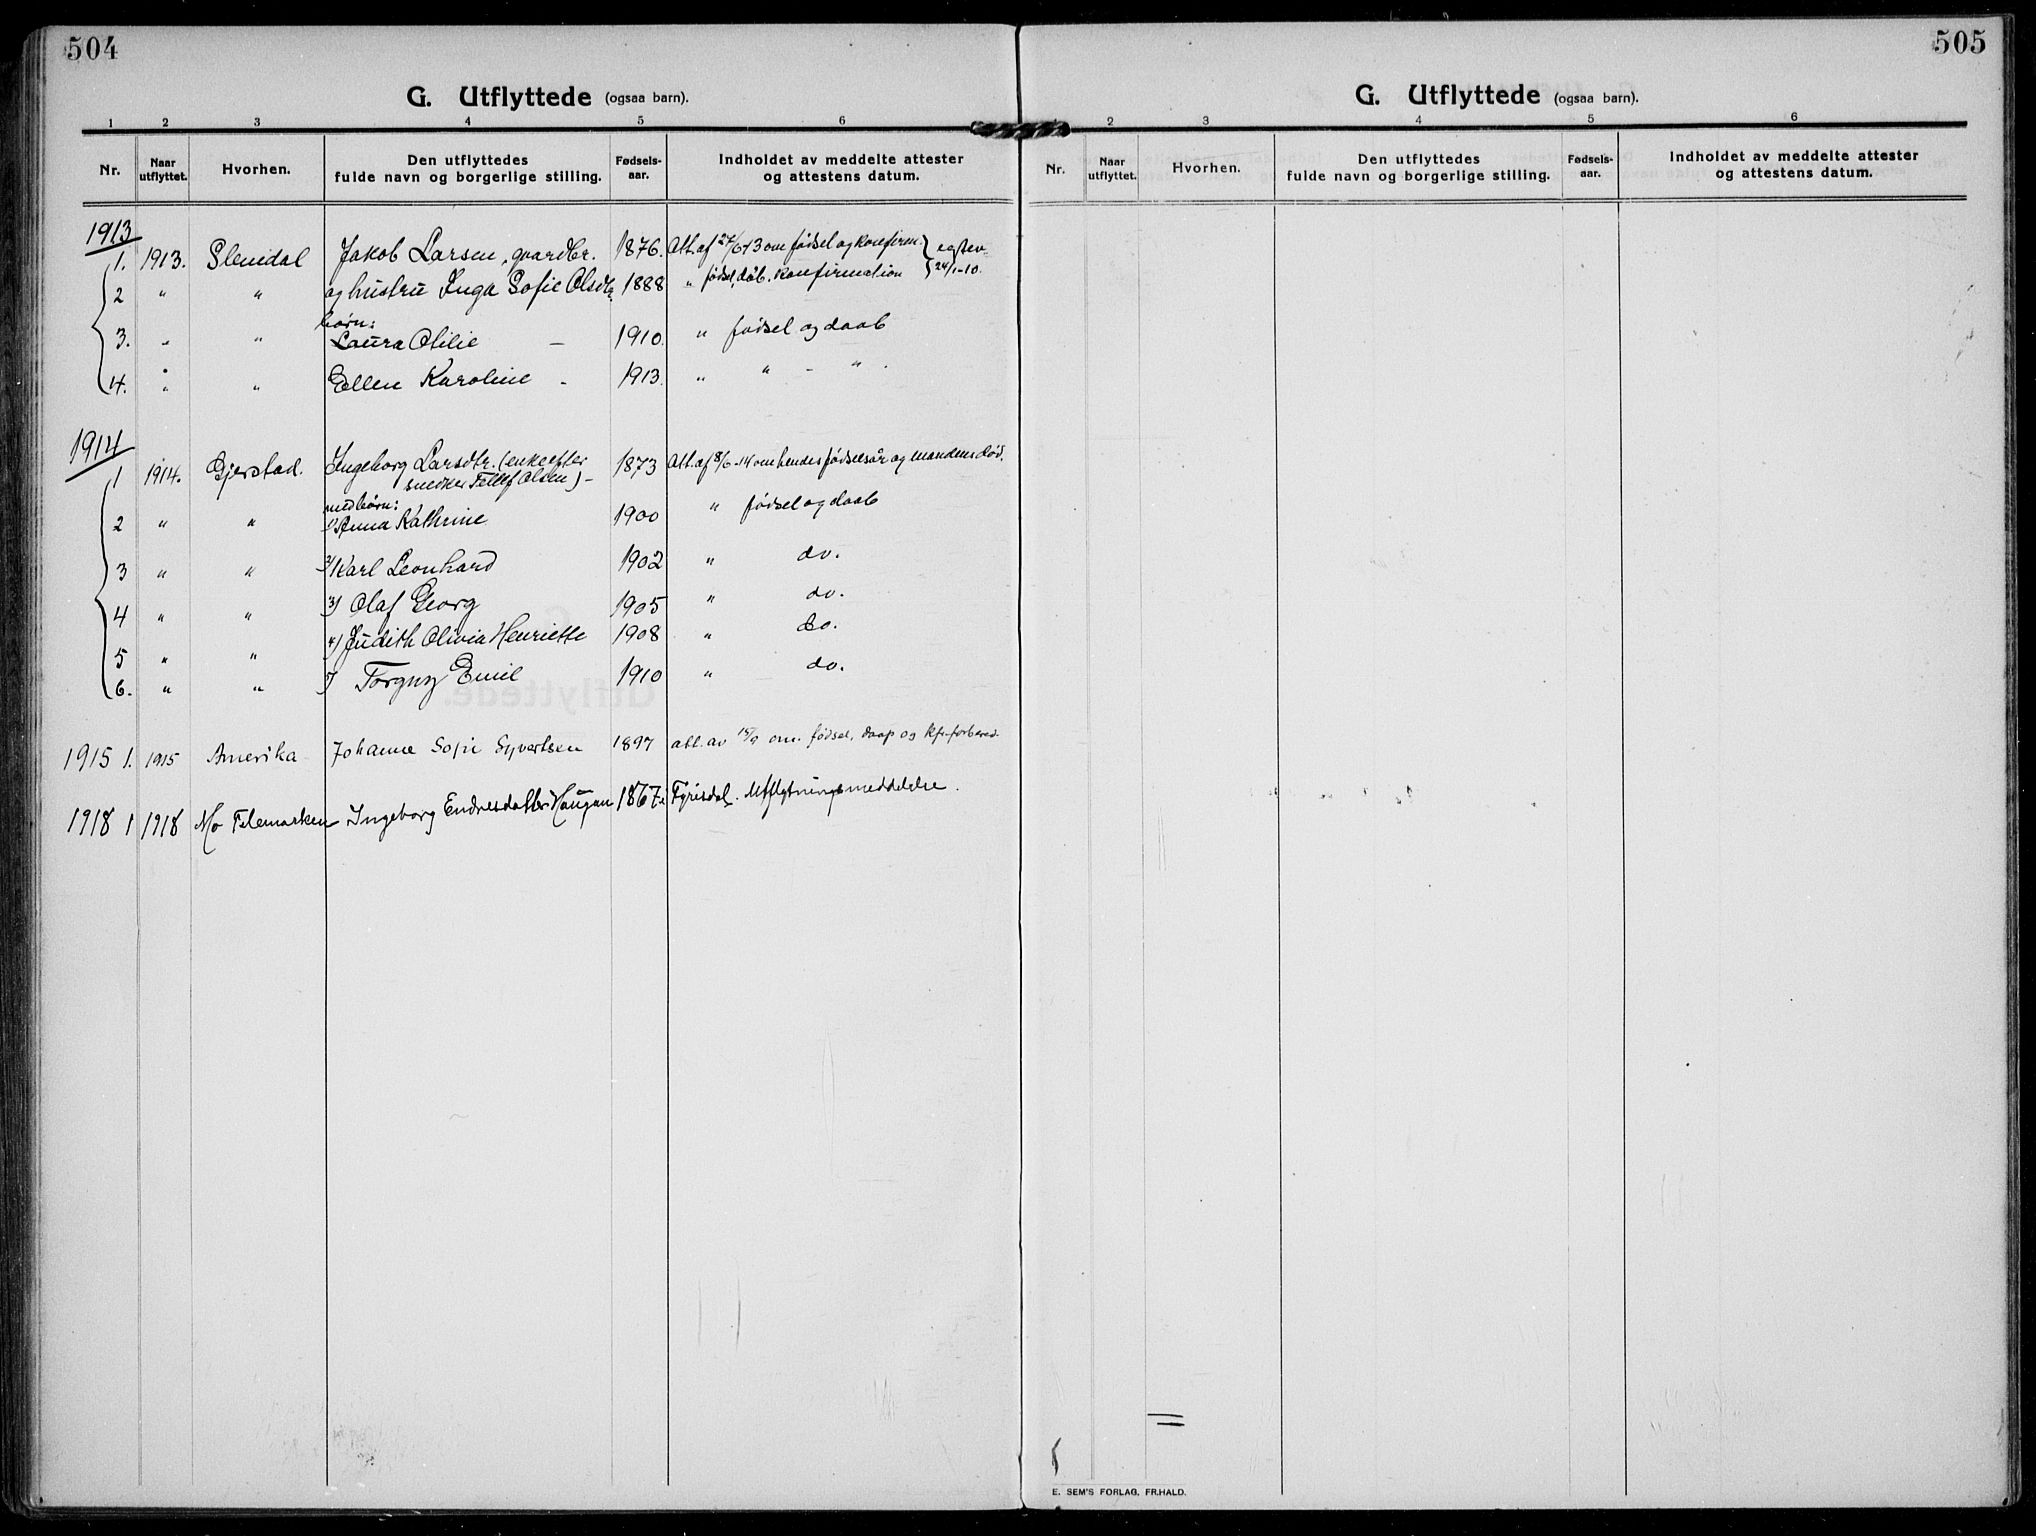 504
G. Utflyttede (ogsaa barn).
1 2 3 4 5 6
Nr. Naar utflyttet. Hvorhen. Den utflyttedes fulde navn og borgerlige stilling. Fødsels-aar. Indholdet av meddelte attester og attestens datum.
1913
1. 1913. Slemdal Jakob Larsen, gaardbr. 1876. Att. af 27/6 13 om fødsel og konfirm.
2 " " og hustru Inga Sofie Olsdtr. 1888 " fødsel, dåb. konfirmation 24/1-10.
børn:
3. " " Laura Otilie – 1910. " fødsel og daab
4. " " Ellen Karoline - 1913. " " - " .
1914
1 1914. Gjerstad. Ingeborg Larsdtr. (enke efter 1873 Att. af 8/6-14 om hendes fødselsår og mandens død.
snedker Tellef Olsen) –
med børn:
2 " " 1) Anna Kathrine 1900 " fødsel og daab
3 " " 2) Karl Leonhard 1902 " do.
4 " " 3) Olaf Georg 1905 " do.
5 " " 4) Judith Olivia Henriette 1908 " do.
6. " " 5) Torguy Emil 1910 " do.
1915 1. 1915 Amerika Johanne Sofie Syvertsen 1897 att. av 15/9 om fødsel, daap og kfr.forbered.
1918 1 1918 Mo Telemarken Ingeborg Endresdatter Haugan 1867 i Fyrisdal. Utflytningsmeddelelse.
505
G. Utflyttede (ogsaa barn).
2 3 4 5 6
Nr. Naar utflyttet. Hvorhen. Den utflyttedes fulde navn og borgerlige stilling. Fødsels-aar. Indholdet av meddelte attester og attestens datum.
E. SEM'S FORLAG, FR.HALD.